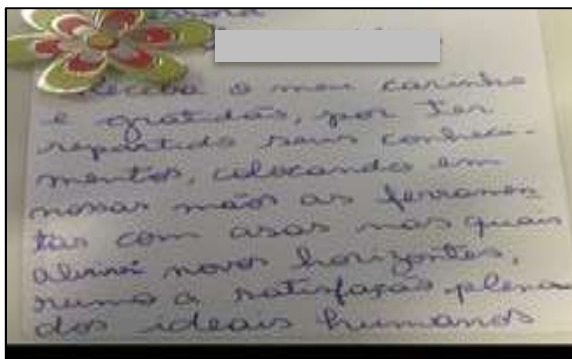 Receba o meu carinho
e gratidão, por ter
repartido seus conheci-
mentos, colocando em
nossas mãos as ferramen
tas com asas nas quais
abrirei novos horizontes,
rumo a satisfação plena
dos ideais humanos